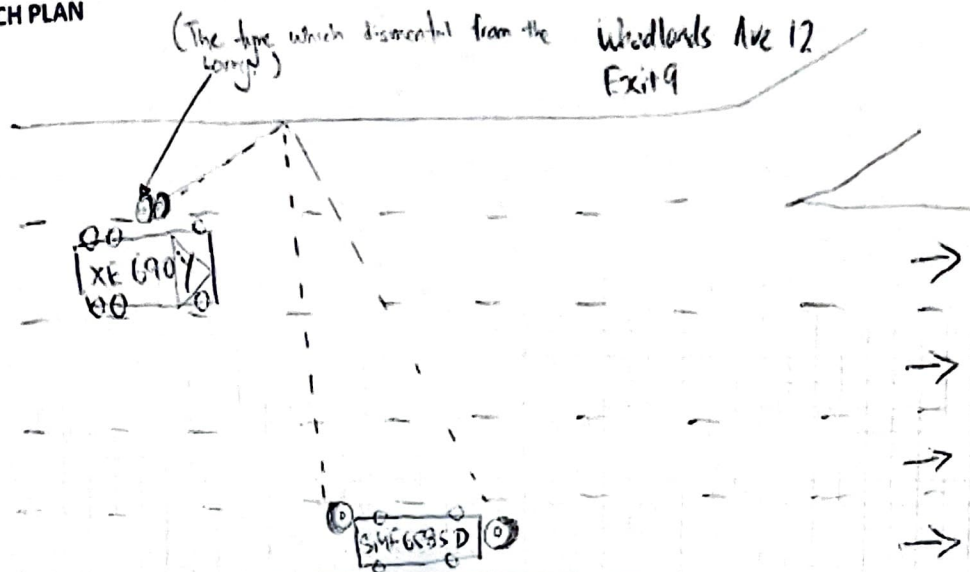 CH PLAN
(The tyre which dismental from the
lorry.)
Woodlands Ave 12
Exit 9
XE 690Y
SMF6585D